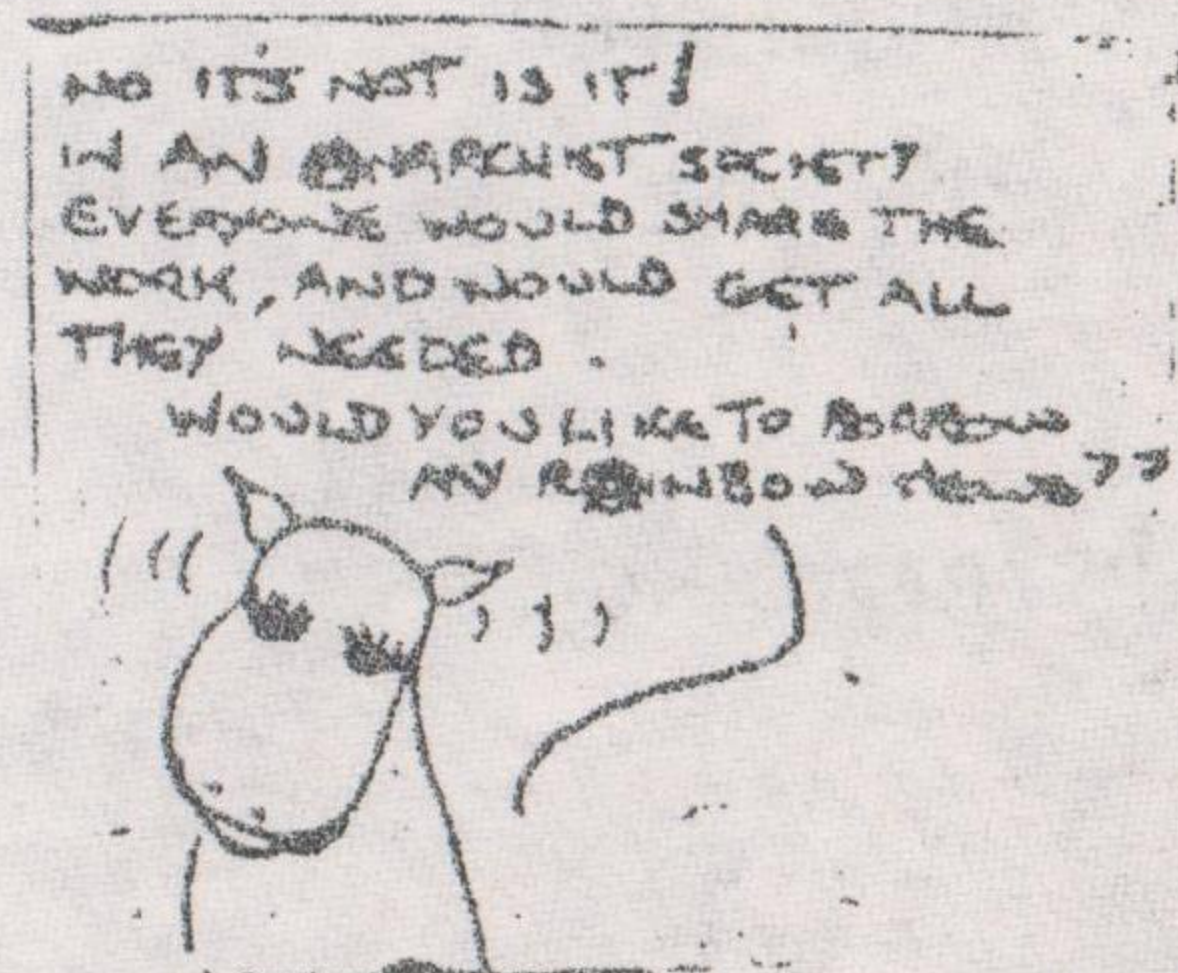 NO IT'S NOT IS IT!
IN AN ANARCHIST SOCIETY
EVERYONE WOULD SHARE THE
WORK, AND WOULD GET ALL
THEY NEEDED.
WOULD YOU LIKE TO BORROW
MY RAINBOW NEWS??